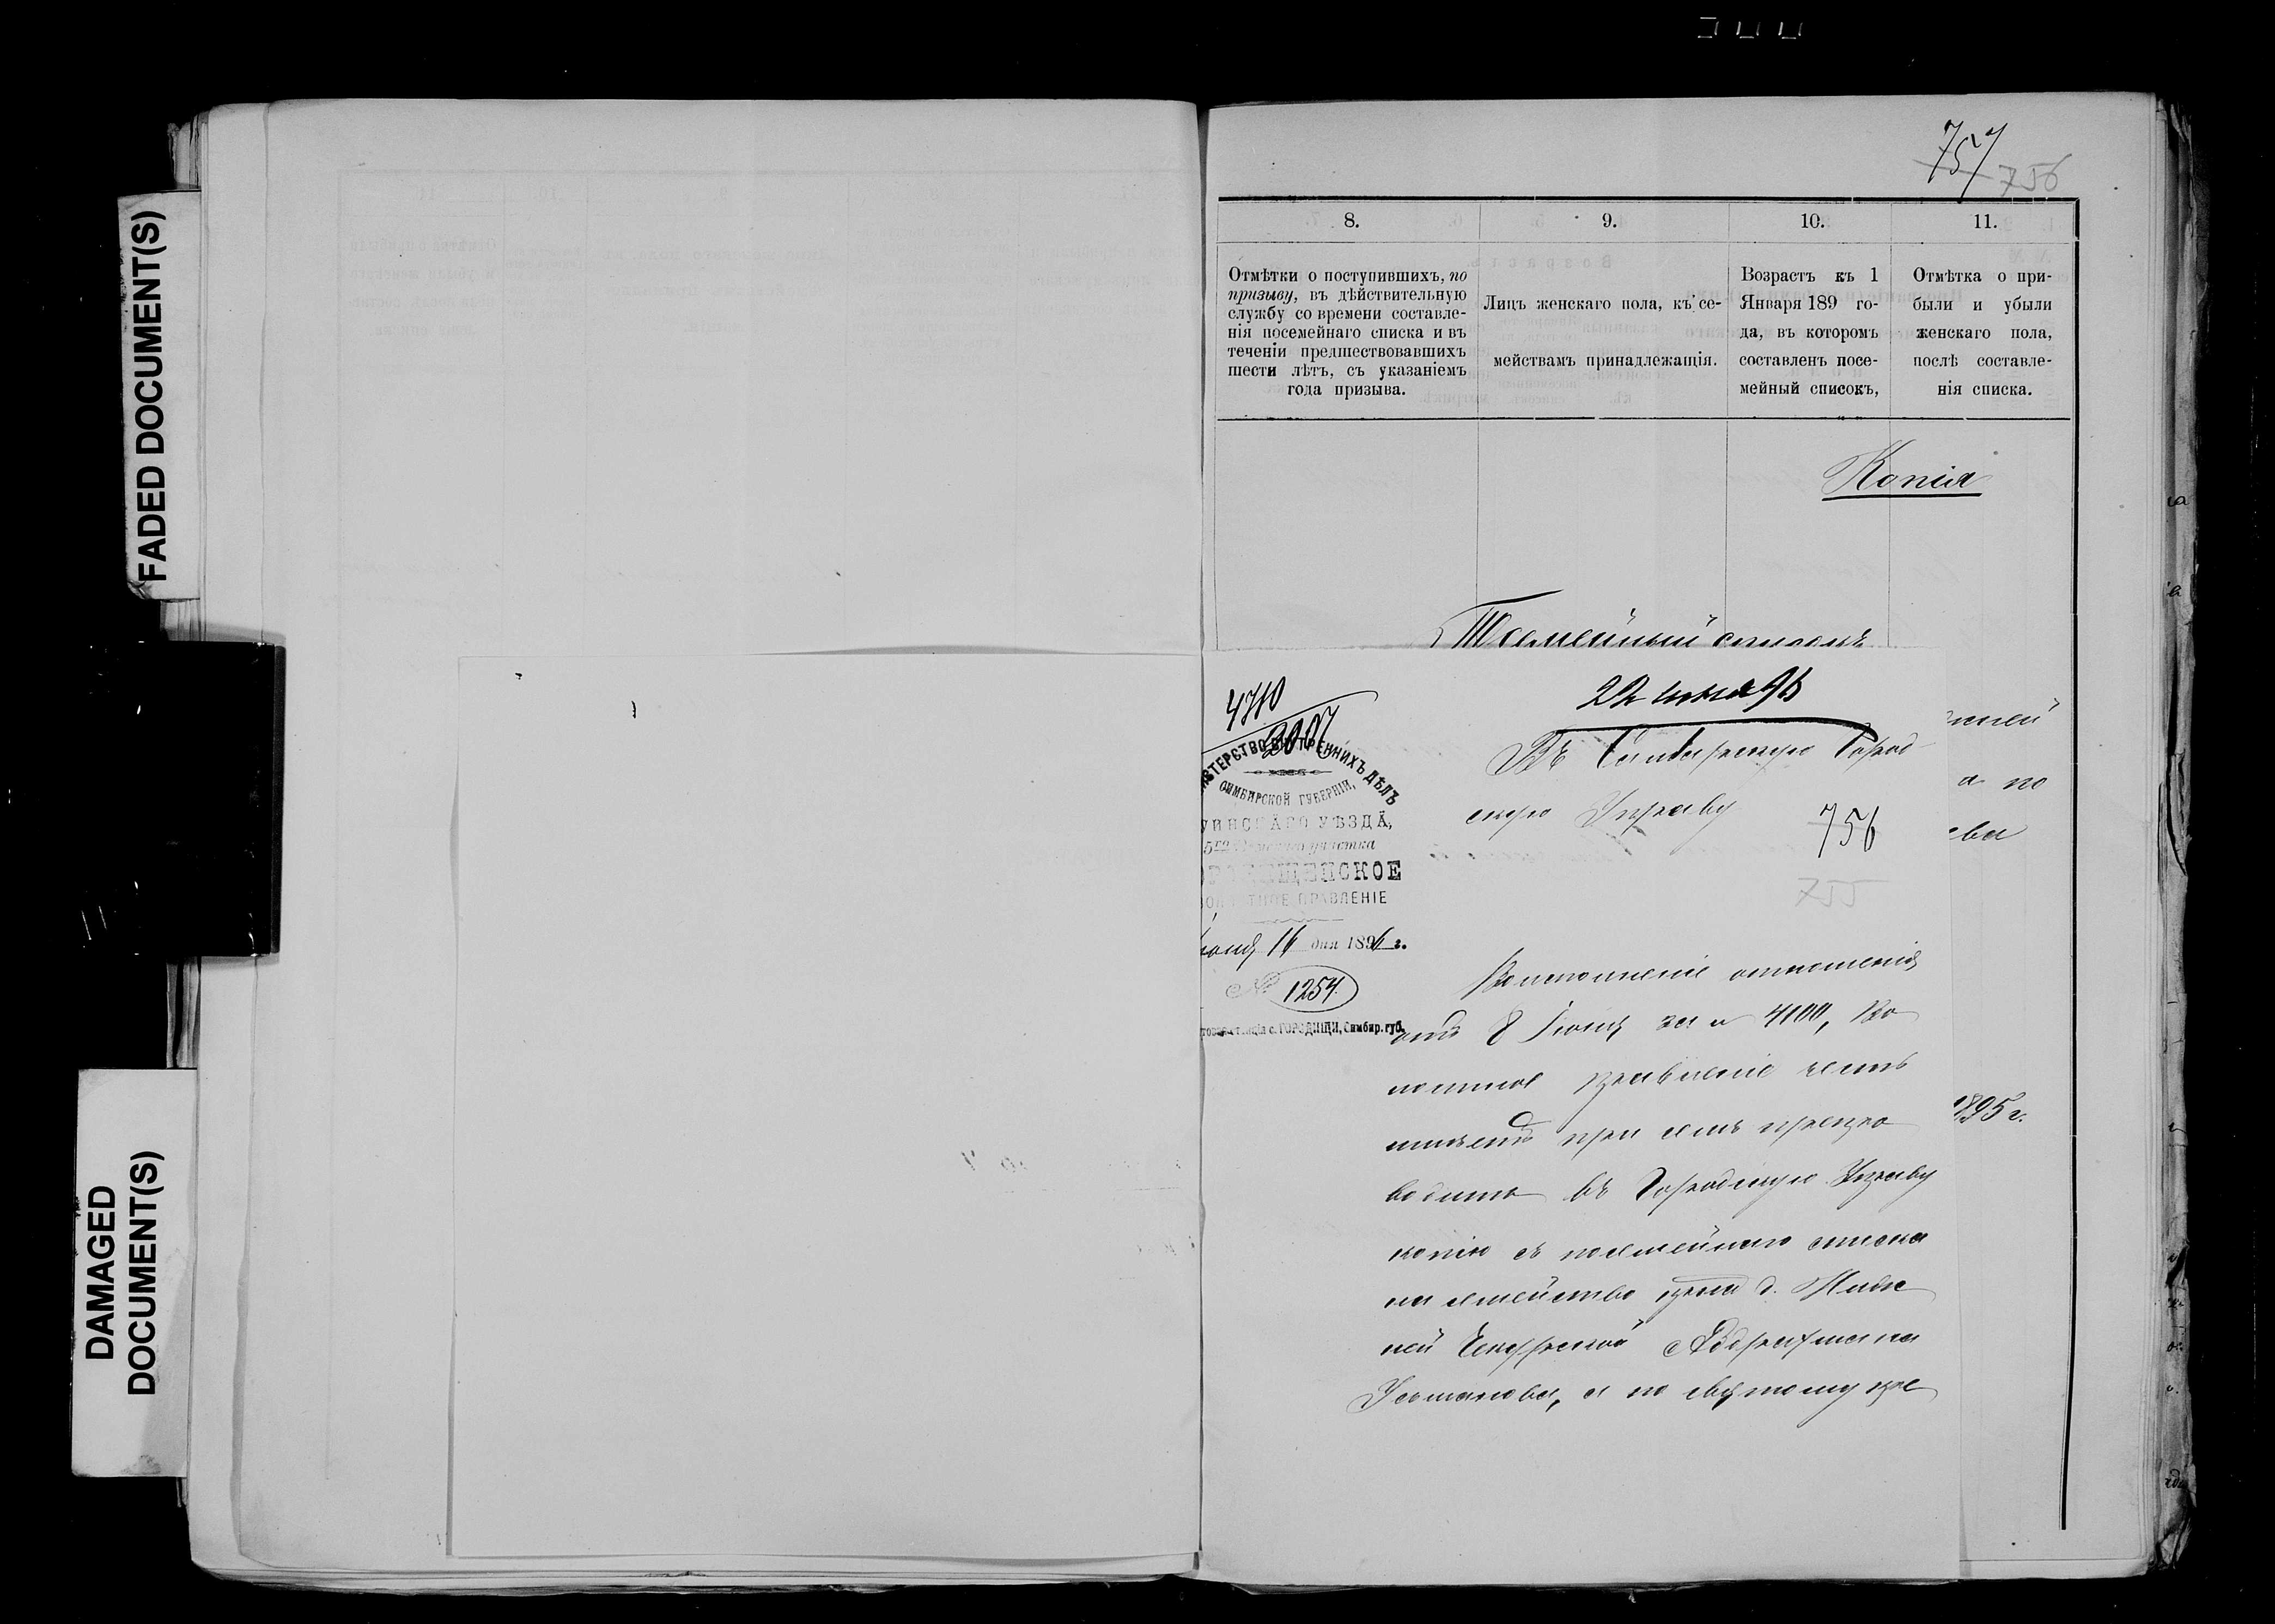 FADED DOCUMENT(S)
DAMAGED
DOCUMENT(S)
757
756
8.
9.
10.
11.
Отмѣтки о поступившихъ, по
призыву, въ дѣйствительную
службу со времени составле-
нія посемейнаго списка и въ
теченіи предшествовавшихъ
шести лѣтъ, съ указаніемъ
года призыва.
Лицъ женскаго пола, къ се-
мействамъ принадлежащія.
Возрастъ къ 1
Января 189 го-
да, въ которомъ
составленъ посе-
мейный списокъ,
Отмѣтка о при-
были и убыли
женскаго пола,
послѣ составле-
нія списка.
Копія
списокъ
а по
ева
1895 г.
4710
2007
22 іюня 96
ИСТЕРСТВО ВНУТРЕННИХЪ ДѢЛЪ
СИМБИРСКОЙ ГУБЕРНІИ,
УИНСКАГО УѢЗДА,
5го участка
ОРОДИЩЕНСКОЕ
ВОЛОСТНОЕ ПРАВЛЕНІЕ
Іюня 16 дня 1896 г.
№ 1254.
с. ГОРОДИЩИ, Симбир. губ.
Въ Симбирскую Город
скую Управу
756
755
Во исполненіе отношенія
отъ 8 Іюня за № 4100, Во
лостное правленіе честь
имѣетъ при семъ препро
водить въ Городскую Управу
копію съ посемейнаго списка
на семейство кр-на д. Ниж
ней Чекурской Абдрахмана
Усманова, а по сему